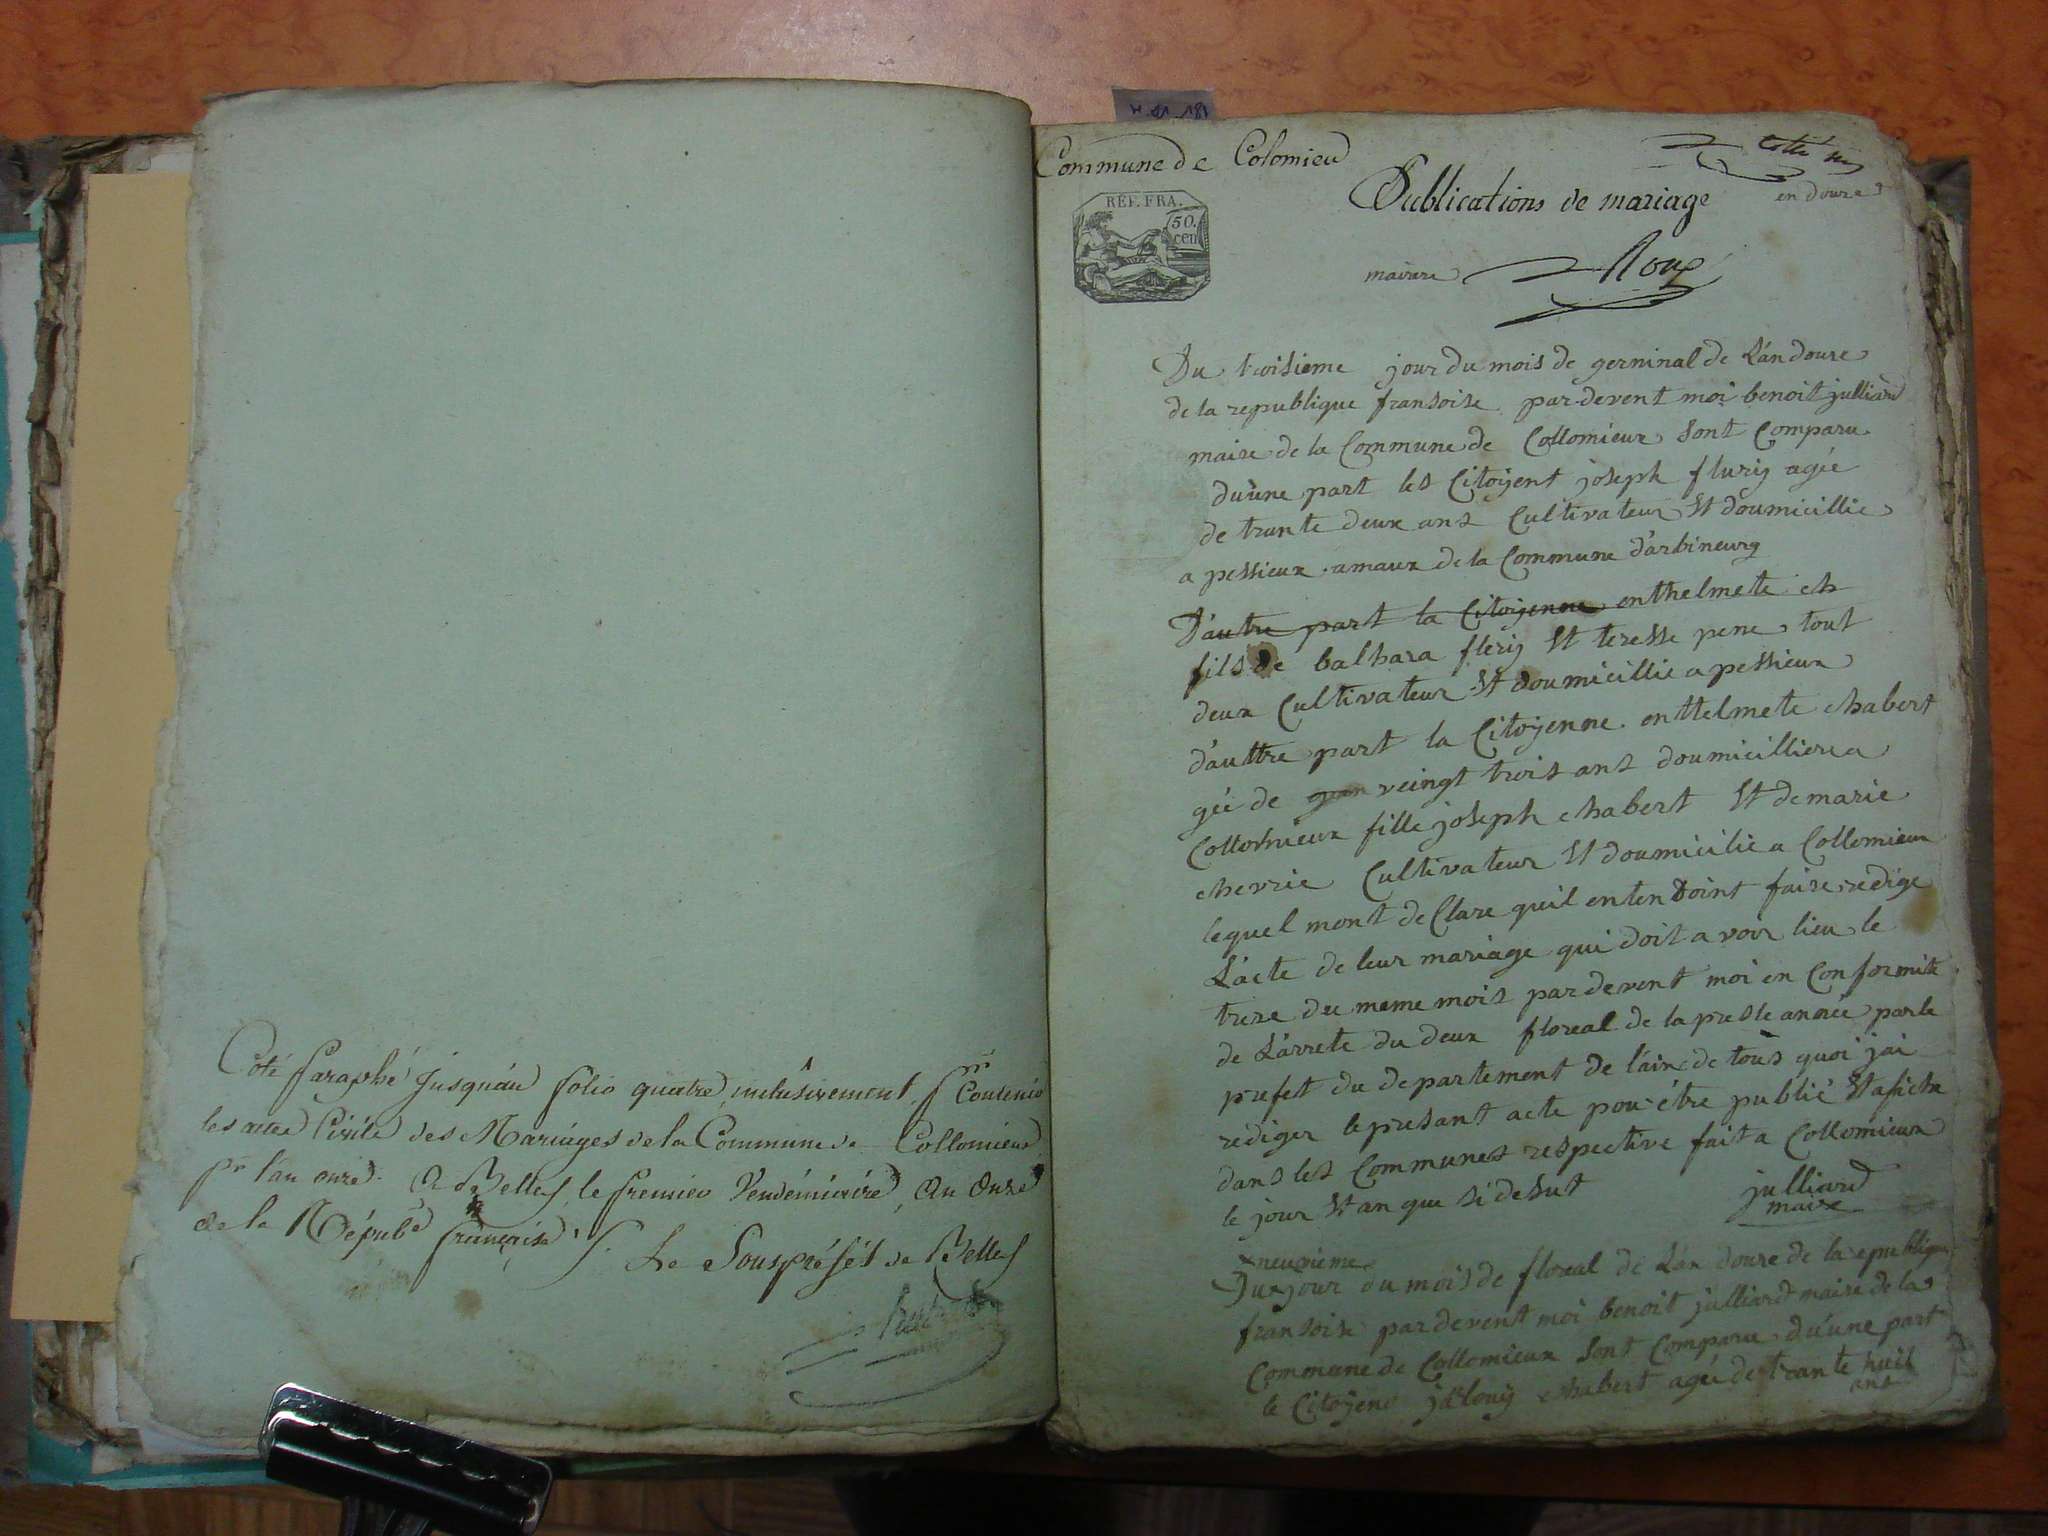 Coté paraphé jusqu'au folio quatre inclusivement pr contenir
les actes civils des Mariages de la Commune de Collomieu
pr l'an onze. A Belley le premier Vendémiaire, an onze
de la Répub. française
Le Souspréfét de Belley
Commune de Colomieu
Cotté
Publications de mariage
en douze
REF. FRA.
50.
cen
maire Roux
Du troisieme jour du mois de germinal de L'an douze
de la republique fransoise par devent moi benoit julliard
maire de la Commune de Collomieux sont Comparu
d'uune part les Citoyent joseph flury agée
de trante deux ans Cultivateur Et doumicillie
a pessieux amaux de la Commune d'arbineuy
D'autre part la Citoyenne enthelmete ch
fils de balhara flery Et teresse pene tout
deux Cultivateur Et doumicillie a pessieux
d'auttre part la Citoyenne enttelmete chabert
gée de veingt trois ans doumicilliere a
Collomieux fille joseph chabert Et de marie
chevrie Cultivateur Et doumicilie a Collomieux
lequel mont de Clare quil entendoint faire redige
L'acte de leur mariage qui doit a voir lieu le
treze du meme mois par devent moi en Conformite
de L'arrete du deux floreal de la preste année parle
prefet du departement de l'ain de tous quoi jai
rediger le presant acte pour être publié Et afiche
dans les Communes respective fait a Collomieux
le jour Et an que si desut
julliard
maire
neuvieme
Du jour du mois de floreal de L'an douze de la republique
fransoise par devent moi benoit julliard maire de la
Commune de Collomieux sont Comparu d'uune part
le Citoyene louis chabert agée de trante huit
ans